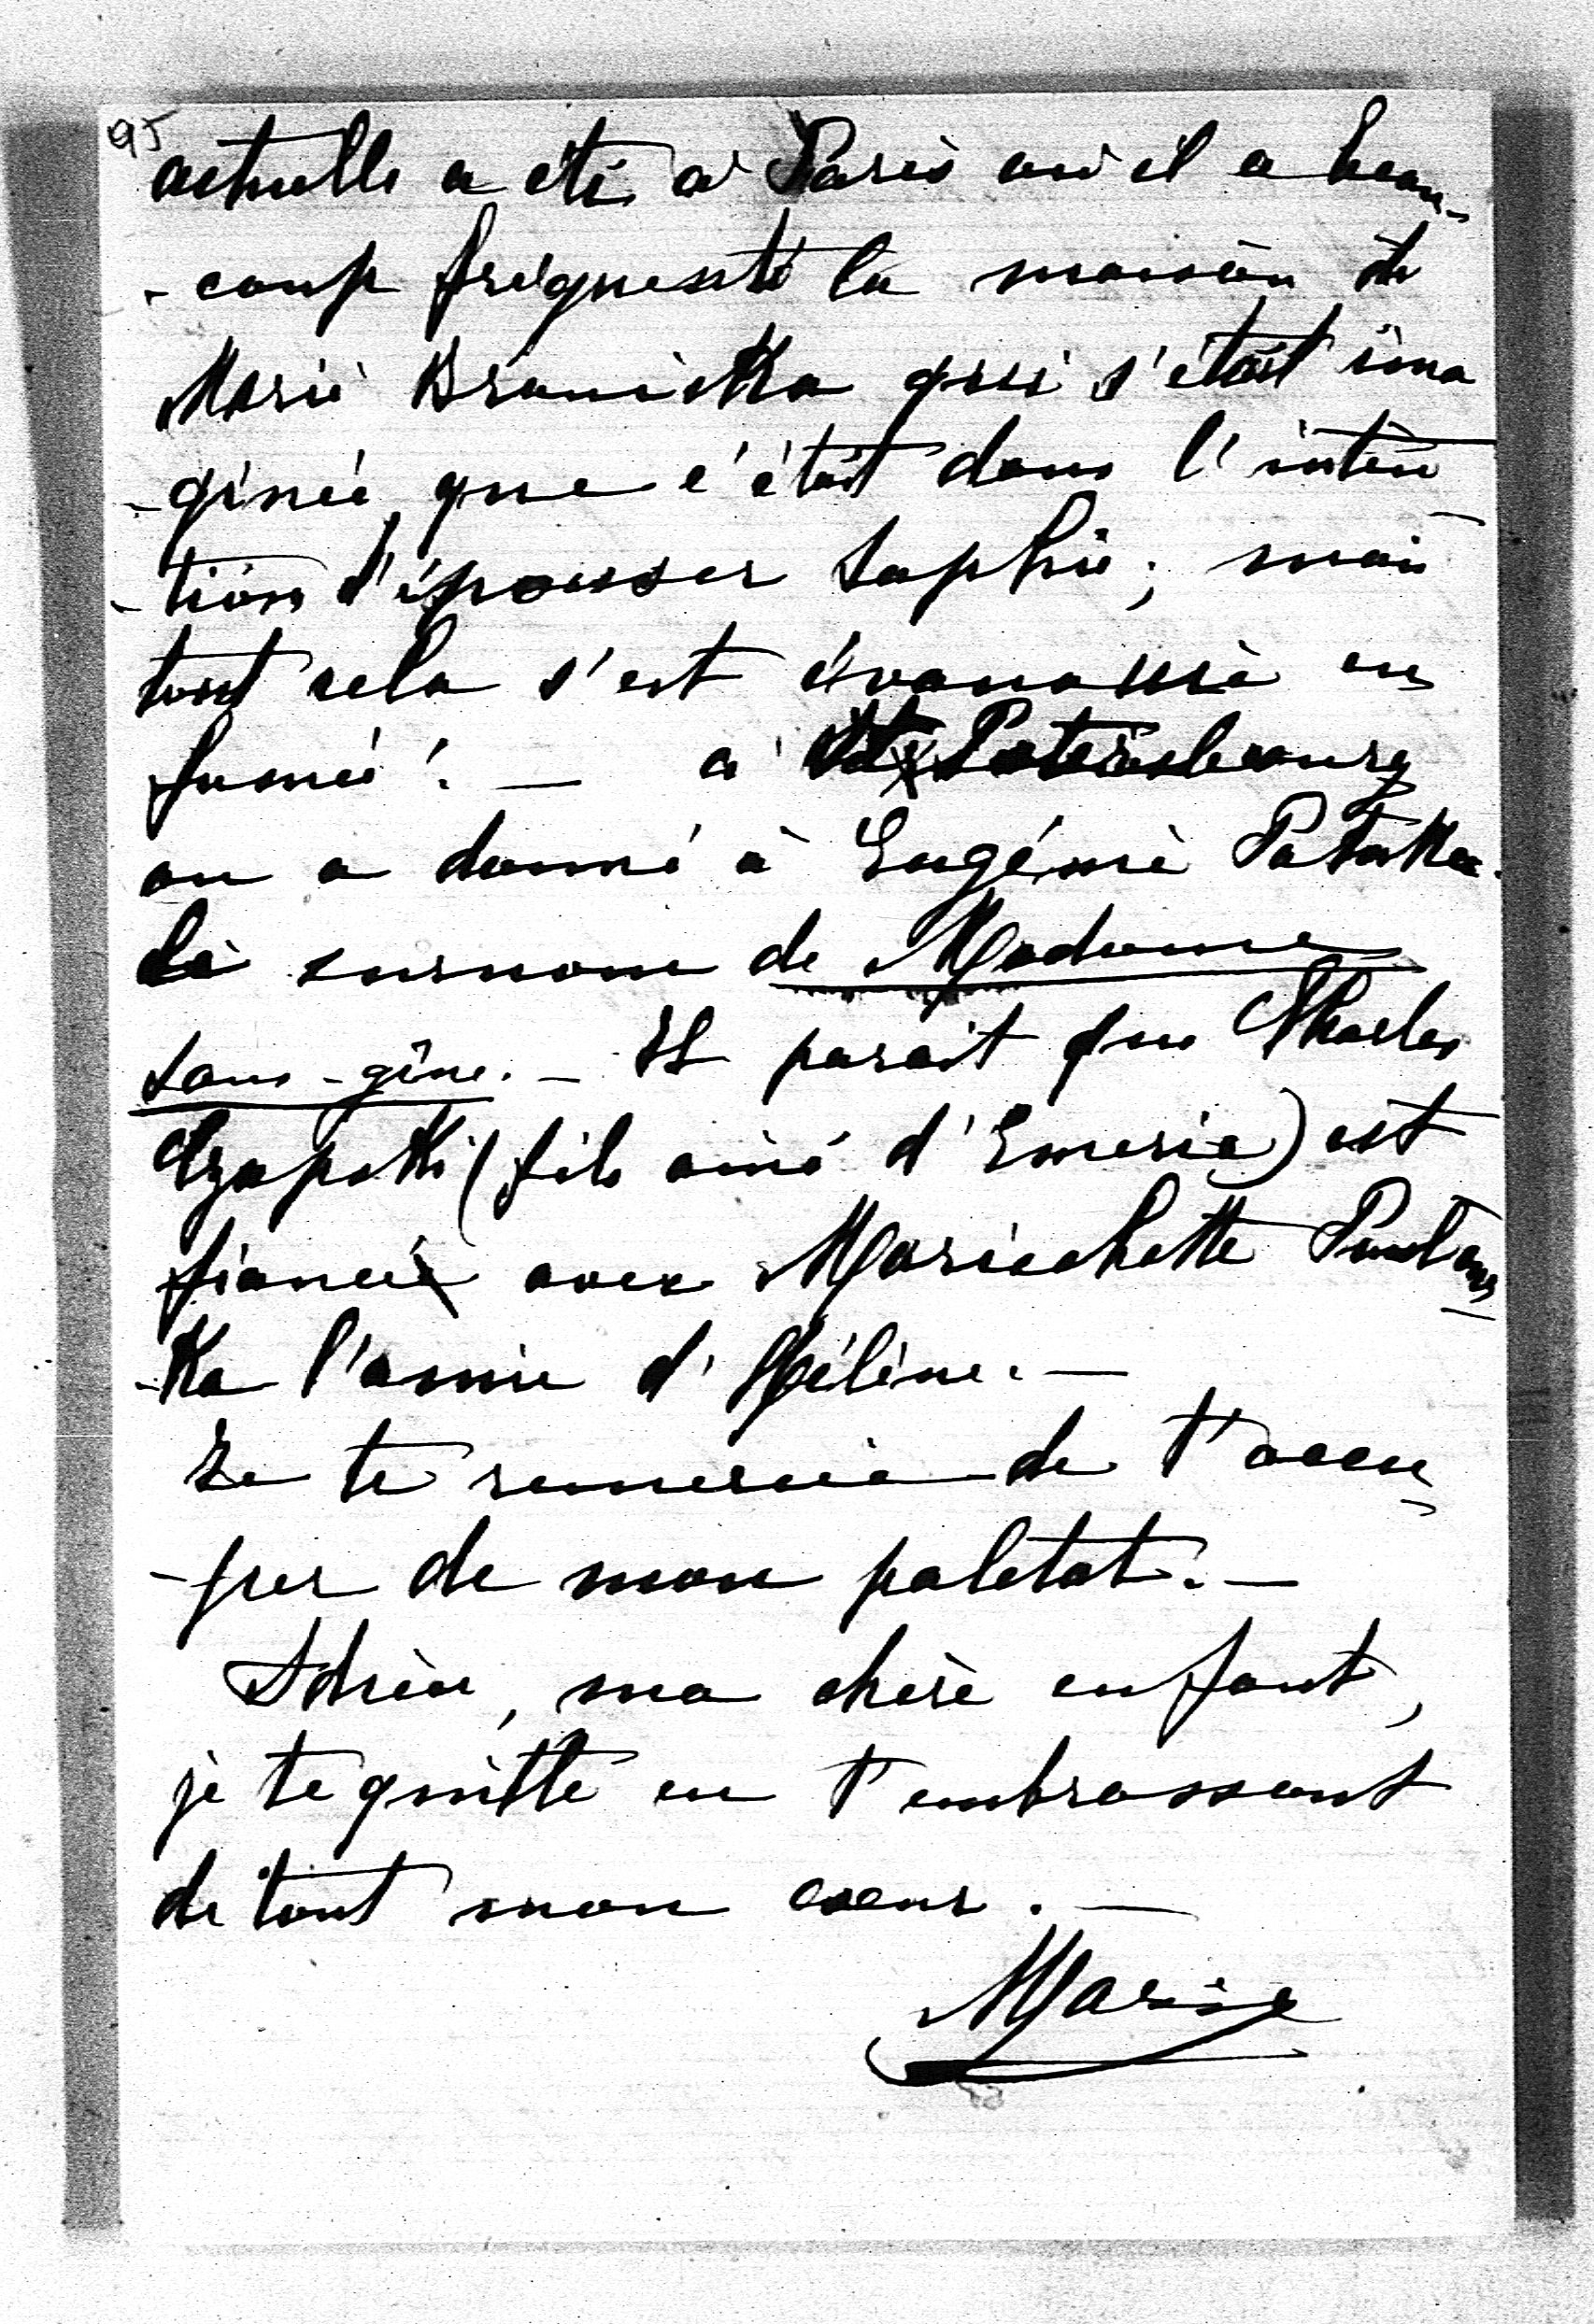 95
actuelle a été à Paris où il a beau-
-coup fréquenté la maison de
Marie Branicka qui s'était ima
-ginée que c'était dans l'inten
-tion d'épouser Sophie; mais
tout cela s'est évanoui en
fumée! — à St Petersbourg
on a donné à Eugénie Potocka
le surnom de Madame
Sans-gêne. — Il parait que Charles
Czapski (fils ainé d'Emeric) est
fiancé avec Mariechette
-ka l'amie d'Hélène. —
Je te remercie de t'occu
-per de mon paletot. —
Adieu, ma chère enfant,
je te quitte en t'embrassant
de tout mon coeur. —
Marie